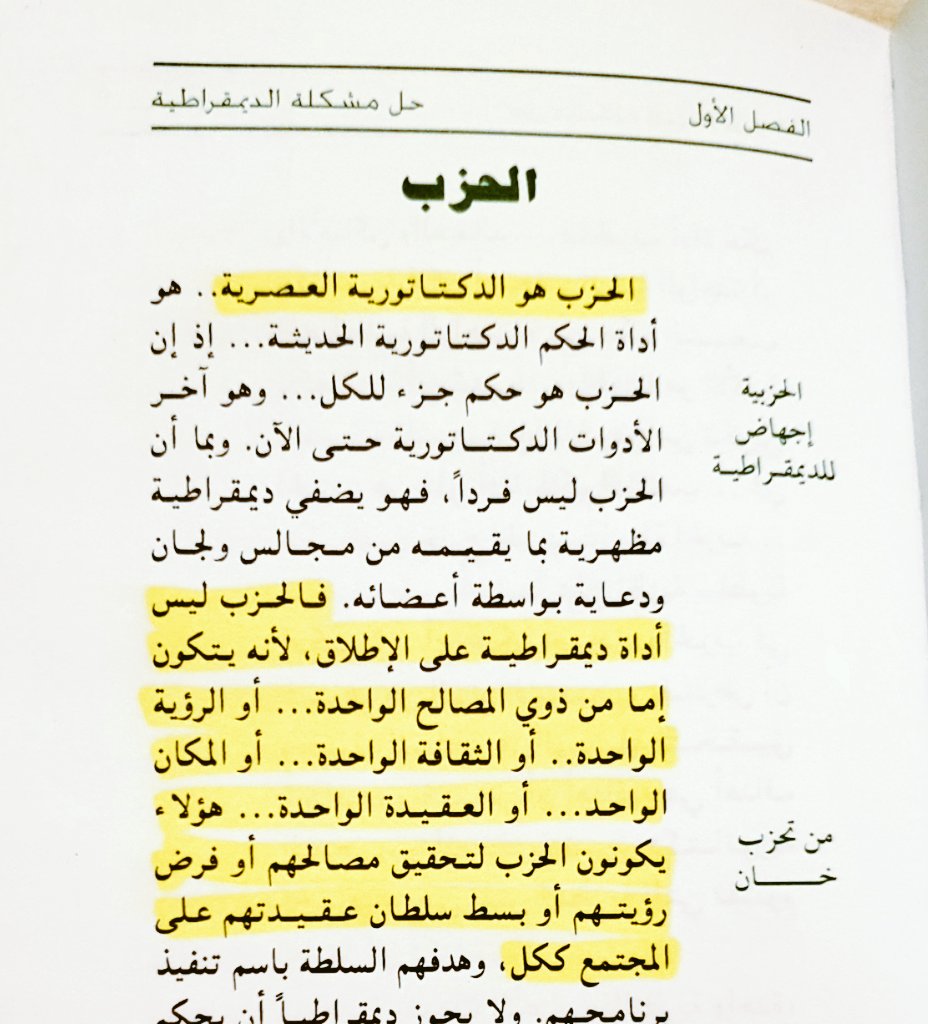 الفصل الأول
حل مشكلة الديمقراطية
الحزب
الحزب هو الدكتاتورية العصرية.. هو
أداة الحكم الدكتاتورية الحديثة... إذ إن
الحزب هو حكم جزء للكل... وهو آخر
الأدوات الدكتاتورية حتى الآن. وبما أن
الحزب ليس فرداً، فهو يضفي ديمقراطية
مظهرية بما يقيمه من مجالس ولجان
ودعاية بواسطة أعضائه. فالحزب ليس
أداة ديمقراطية على الإطلاق، لأنه يتكون
إما من ذوي المصالح الواحدة... أو الرؤية
الواحدة.. أو الثقافة الواحدة... أو المكان
الواحد... أو العقيدة الواحدة... هؤلاء
يكونون الحزب لتحقيق مصالحهم أو فرض
رؤيتهم أو بسط سلطان عقيدتهم على
المجتمع ككل، وهدفهم السلطة باسم تنفيذ
برنامجهم. ولا يجوز ديمقراطياً أن يحكم
الحزبية
إجهاض
للديمقراطية
من تحزب
خان